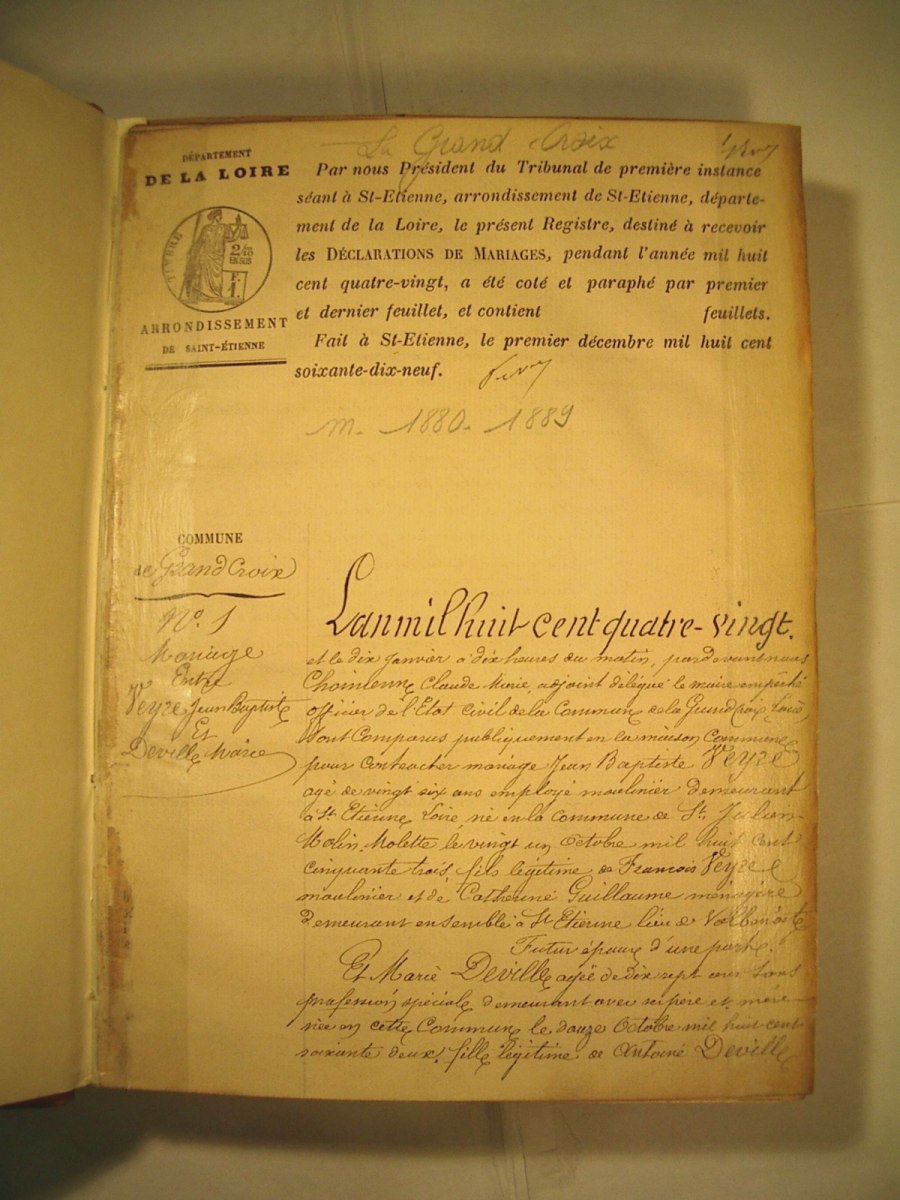 La Grand Croix
DÉPARTEMENT
DE LA LOIRE
TIMBRE
2/10
EN SUS
F.
1.
ARRONDISSEMENT
DE SAINT-ÉTIENNE
Par nous Président du Tribunal de première instance
séant à St-Etienne, arrondissement de St-Etienne, départe-
ment de la Loire, le présent Registre, destiné à recevoir
les DÉCLARATIONS DE MARIAGES, pendant l'année mil huit
cent quatre-vingt, a été coté et paraphé par premier
et dernier feuillet, et contient feuillets.
Fait à St-Etienne, le premier décembre mil huit cent
soixante-dix-neuf.
m- 1880- 1889
COMMUNE
de Grand Croix
No. 1
Mariage
Entre
Veyre Jean Baptiste
Et
Deville Marie
L'an mil huit cent quatre-vingt.
et le dix Janvier à dix heures du matin, pardevant nous
Claude Marie, adjoint délégué le maire empêché
officier de l'Etat Civil de la Commune de la Grand Croix Loire
Sont Comparus publiquement en la maison Commune
pour Contracter mariage Jean Baptiste Veyre
agé de vingt six ans employé moulinier demeurant
à St Etienne Loire né en la Commune de St. Julien
Molin Molette le vingt un Octobre mil huit Cent
cinquante trois, fils légitime de Francois Veyre
moulinier et de Catherine Guillaume ménagère
demeurant ensemble à St Etienne lieu de Valbenoite
Futur époux d'une part.
Et Marie Deville agée de dix sept ans sans
profession spéciale demeurant avec ses père et mère
née en cette Commune le douze Octobre mil huit cent
soixante deux, fille légitime de Antoine Deville